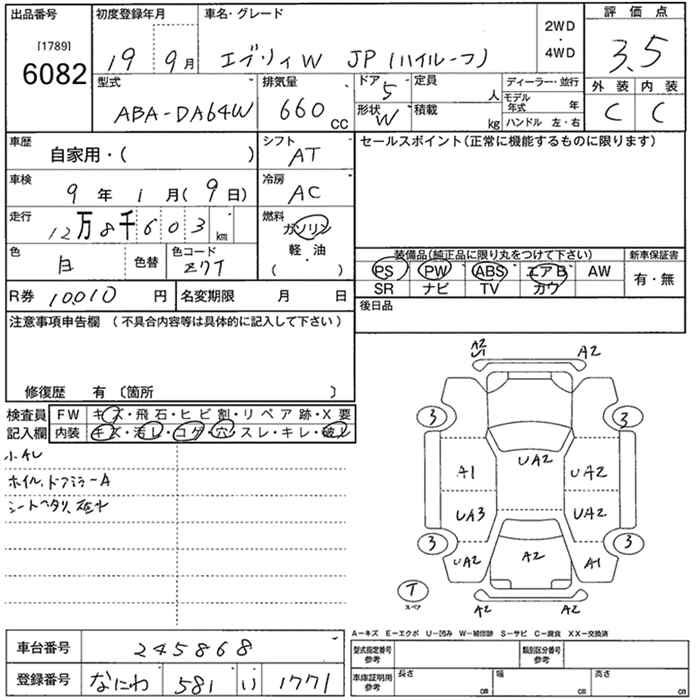 出品番号 初度登録年月 車名・グレード 2WD・4WD 評価点
[1789] 6082 19 9月 エブリィW JP(ハイルーフ) 3.5
型式 排気量 ドア 定員 ディーラー・並行 外装 内装
ABA-DA64W 660 CC 5 人 モデル年式 年 C C
形状 W 積載 kg ハンドル 左・右
車歴 自家用・( ) シフト AT セールスポイント(正常に機能するものに限ります)
車検 9年 1月(9日) 冷房 AC
走行 12万8千603 km 燃料 ガソリン 軽・油 ( )
色 白 色替 色コード Z7T
装備品(純正品に限り丸をつけて下さい) 新車保証書
PS PW ABS エアB AW 有・無
SR ナビ TV カワ
R券 10010 円 名変期限 月 日
後日品
注意事項申告欄 (不具合内容等は具体的に記入して下さい)
修復歴 有 〔箇所 〕
検査員 FW キズ・飛石・ヒビ割・リペア跡・X要
記入欄 内装 キズ・汚レ・コゲ・穴・スレ・キレ・破レ
小AU
ホイル、ドアミラーA
シートヘタリ、
A2 A2
U1
3 3
A1 UA2 UA2
UA3 UA2
3 3
UA2 A2 A1
T
スペア
A2 A2
A-キズ E-エクボ U-凹み W-補修跡 S-サビ C-腐食 XX-交換済
車台番号 245868
型式指定番号 参考 類別区分番号 参考
登録番号 なにわ 581 い 1771
車庫証明用 参考 長さ cm 幅 cm 高さ cm